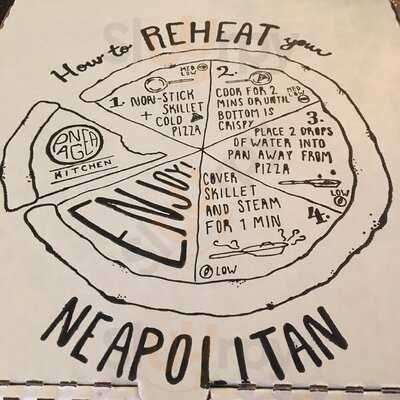 How to REHEAT your
MED
LOW
1. NON-STICK
+ SKILLET
COLD
PIZZA
2.
COOK FOR 2
MINS OR UNTIL
BOTTOM IS
CRISPY
MED
LOW
3.
PLACE 2 DROPS
OF WATER INTO
PAN AWAY FROM
PIZZA
LOW
4.
COVER
SKILLET
AND STEAM
FOR 1 MIN
LOW
ENJOY
KITCHEN
NEAPOLITAN